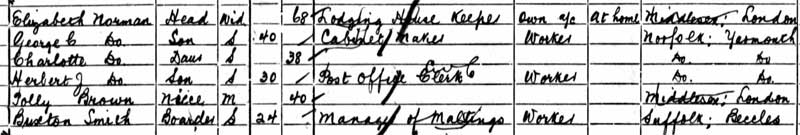 Elizabeth Norman Head Wid 68 Lodging House Keeper Own a/c At home Middlesex; London
George C Do. Son S 40 Cabinet Maker Worker Norfolk; Yarmouth
Charlotte Do. Daur S 38 Do. Do.
Herbert J Do. Son S 30 Post Office Clerk Worker Do. Do.
Polly Brown Niece M 40 Middlesex; London
Buxton Smith Boarder S 24 Manager of Maltings Worker Suffolk; Beccles